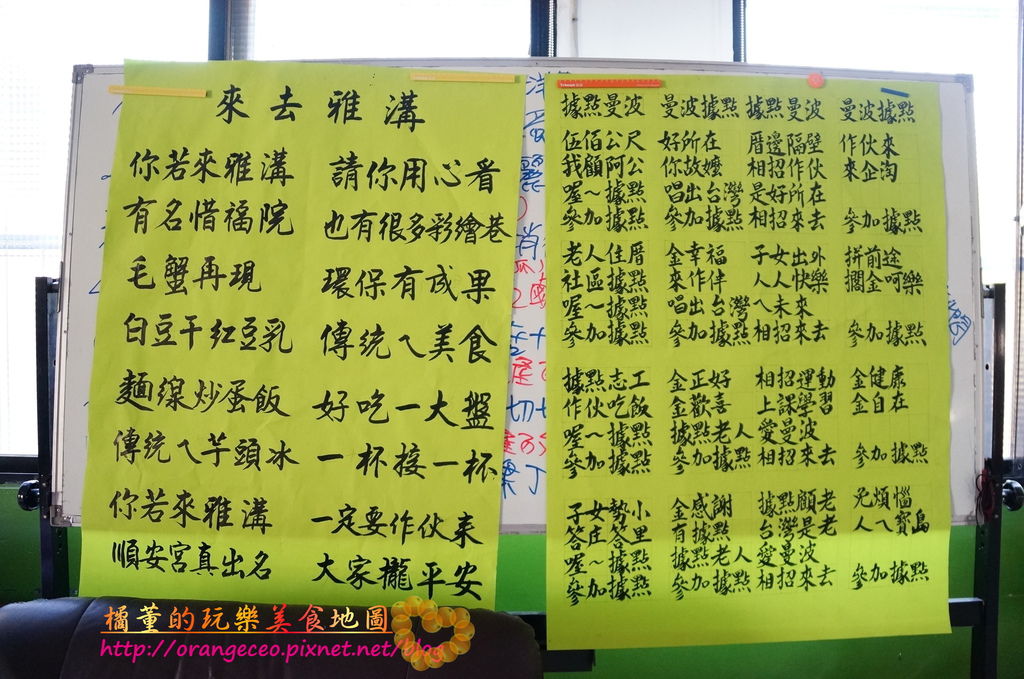 來去雅溝
你若來雅溝 請你用心看
有名惜福院 也有很多彩繪巷
毛蟹再現 環保有成果
白豆干紅豆乳 傳統ㄟ美食
麵線炒蛋飯 好吃一大盤
傳統ㄟ芋頭冰 一杯接一杯
你若來雅溝 一定要作伙來
順安宮真出名 大家攏平安
據點曼波 曼波據點 據點曼波 曼波據點
伍佰公尺 好所在 厝邊隔壁 作伙來
我顧阿公 你故嬤 相招作伙 來企淘
喔～據點 唱出台灣 是好所在
參加據點 參加據點 相招來去 參加據點
老人住厝 金幸福 子女出外 拼前途
社區據點 來作伴 人人快樂 擱金呵樂
喔～據點 唱出台灣 ㄟ未來
參加據點 參加據點 相招來去 參加據點
據點志工 金正好 相招運動 金健康
作伙吃飯 金歡喜 上課學習 金自在
喔～據點 據點老人 愛曼波
參加據點 參加據點 相招來去 參加據點
子女勢小 金感謝 據點顧老 免煩惱
答庄答里 有據點 台灣是老 人ㄟ寶島
喔～據點 據點老人 愛曼波
參加據點 參加據點 相招來去 參加據點
橘董的玩樂美食地圖
http://orangeceo.pixnet.net/blog